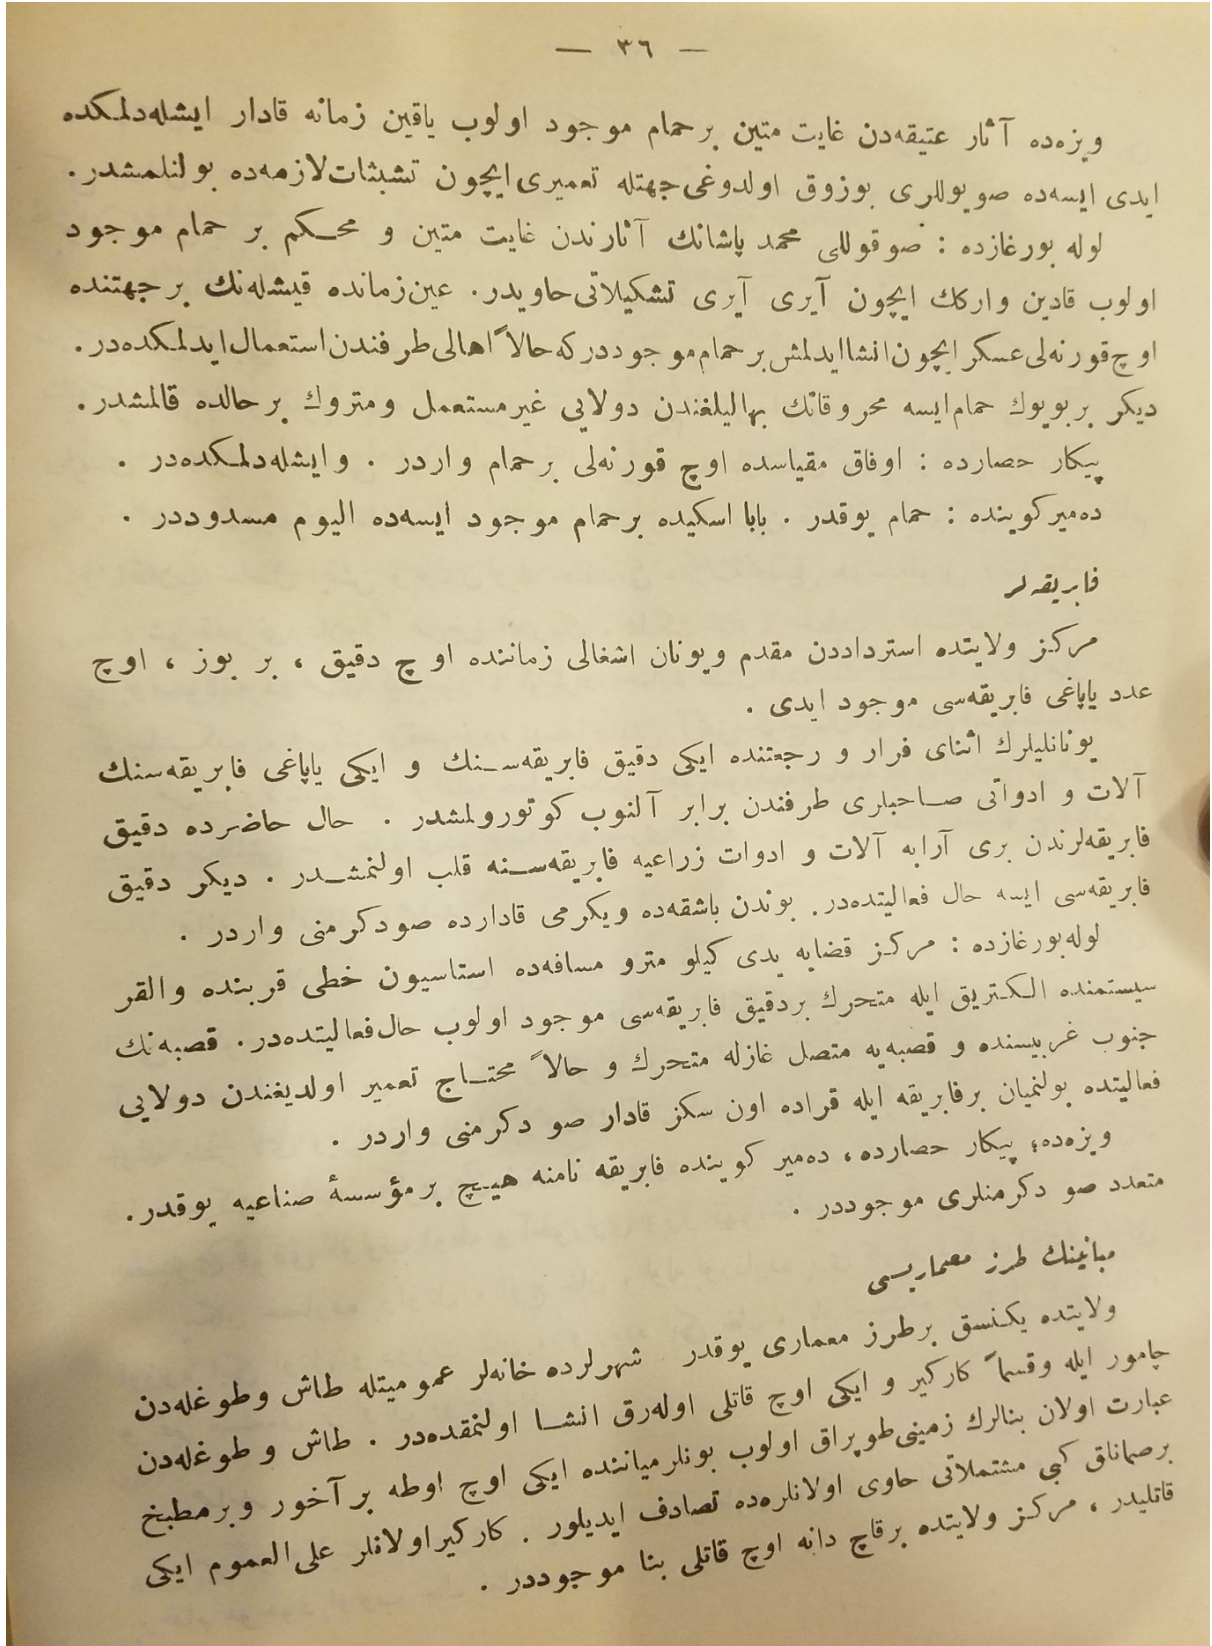 — ٣٦ —
ويزه‌ده آثار عتيقه‌دن غايت متين بر حمام موجود اولوب ياقين زمانه قادار ايشله‌دلمكده
ايدى ايسه‌ده صو يوللرى بوزوق اولدوغى جهتله تعميرى ايچون تشبثات لازمه‌ده بولنلمشدر.
لوله بورغازده : صوقوللى محمد پاشانك آثارندن غايت متين و محكم بر حمام موجود
اولوب قادين واركك ايچون آيرى آيرى تشكيلاتى حاويدر. عين زمانده قيشله‌نك بر جهتنده
اوچ قورنه‌لى عسكر ايچون انشا ايدلمش بر حمام موجوددر كه حالاً اهالى طرفندن استعمال ايدلمكده‌در.
ديكر بر بويوك حمام ايسه محروقاتك بهاليلغندن دولايى غير مستعمل ومتروك بر حالده قالمشدر.
پيكار حصارده : اوفاق مقياسده اوچ قورنه‌لى بر حمام واردر . وايشله‌دلمكده‌در .
ده‌ميركوينده : حمام يوقدر . بابا اسكيده بر حمام موجود ايسه‌ده اليوم مسدوددر .
فابريقه‌لر
مركز ولايتده استرداددن مقدم ويونان اشغالى زماننده اوچ دقيق ، بر بوز ، اوچ
عدد ياپاغى فابريقه‌سى موجود ايدى .
يونانليلرك اثناى فرار و رجعتنده ايكى دقيق فابريقه‌سنك و ايكى ياپاغى فابريقه‌سنك
آلات و ادواتى صاحبلرى طرفندن برابر آلنوب كوتورولمشدر . حال حاضرده دقيق
فابريقه‌لرندن برى آرابه آلات و ادوات زراعيه فابريقه‌سنه قلب اولنمشدر . ديكر دقيق
فابريقه‌سى ايسه حال فعاليتده‌در. بوندن باشقه‌ده ويكرمى قادارده صودكرمنى واردر .
لوله‌بورغازده : مركز قضايه يدى كيلو مترو مسافه‌ده استاسيون خطى قربنده والقر
سيستمنده الكتريق ايله متحرك بر دقيق فابريقه‌سى موجود اولوب حال فعاليتده‌در. قصبه‌نك
جنوب غربيسنده و قصبه‌يه متصل غازله متحرك و حالاً محتاج تعمير اولديغندن دولايى
فعاليتده بولنميان بر فابريقه ايله قراده اون سكز قادار صو دكرمنى واردر .
ويزه‌ده؛ پيكار حصارده، ده‌مير كوينده فابريقه نامنه هيچ بر مؤسسۀ صناعيه يوقدر.
متعدد صو دكرمنلرى موجوددر .
مبانينك طرز معماريسى
ولايتده يكنسق بر طرز معمارى يوقدر شهرلرده خانه‌لر عموميتله طاش وطوغله‌دن
چامور ايله وقسماً كاركير و ايكى اوچ قاتلى اوله‌رق انشا اولنمقده‌در . طاش و طوغله‌دن
عبارت اولان بنالرك زمينى طوپراق اولوب بونلر مياننده ايكى اوچ اوطه بر آخور وبر مطبخ
بر صماناق كبى مشتملاتى حاوى اولانلره‌ده تصادف ايديلور . كاركير اولانلر على العموم ايكى
قاتليدر ، مركز ولايتده بر قاچ دانه اوچ قاتلى بنا موجوددر .